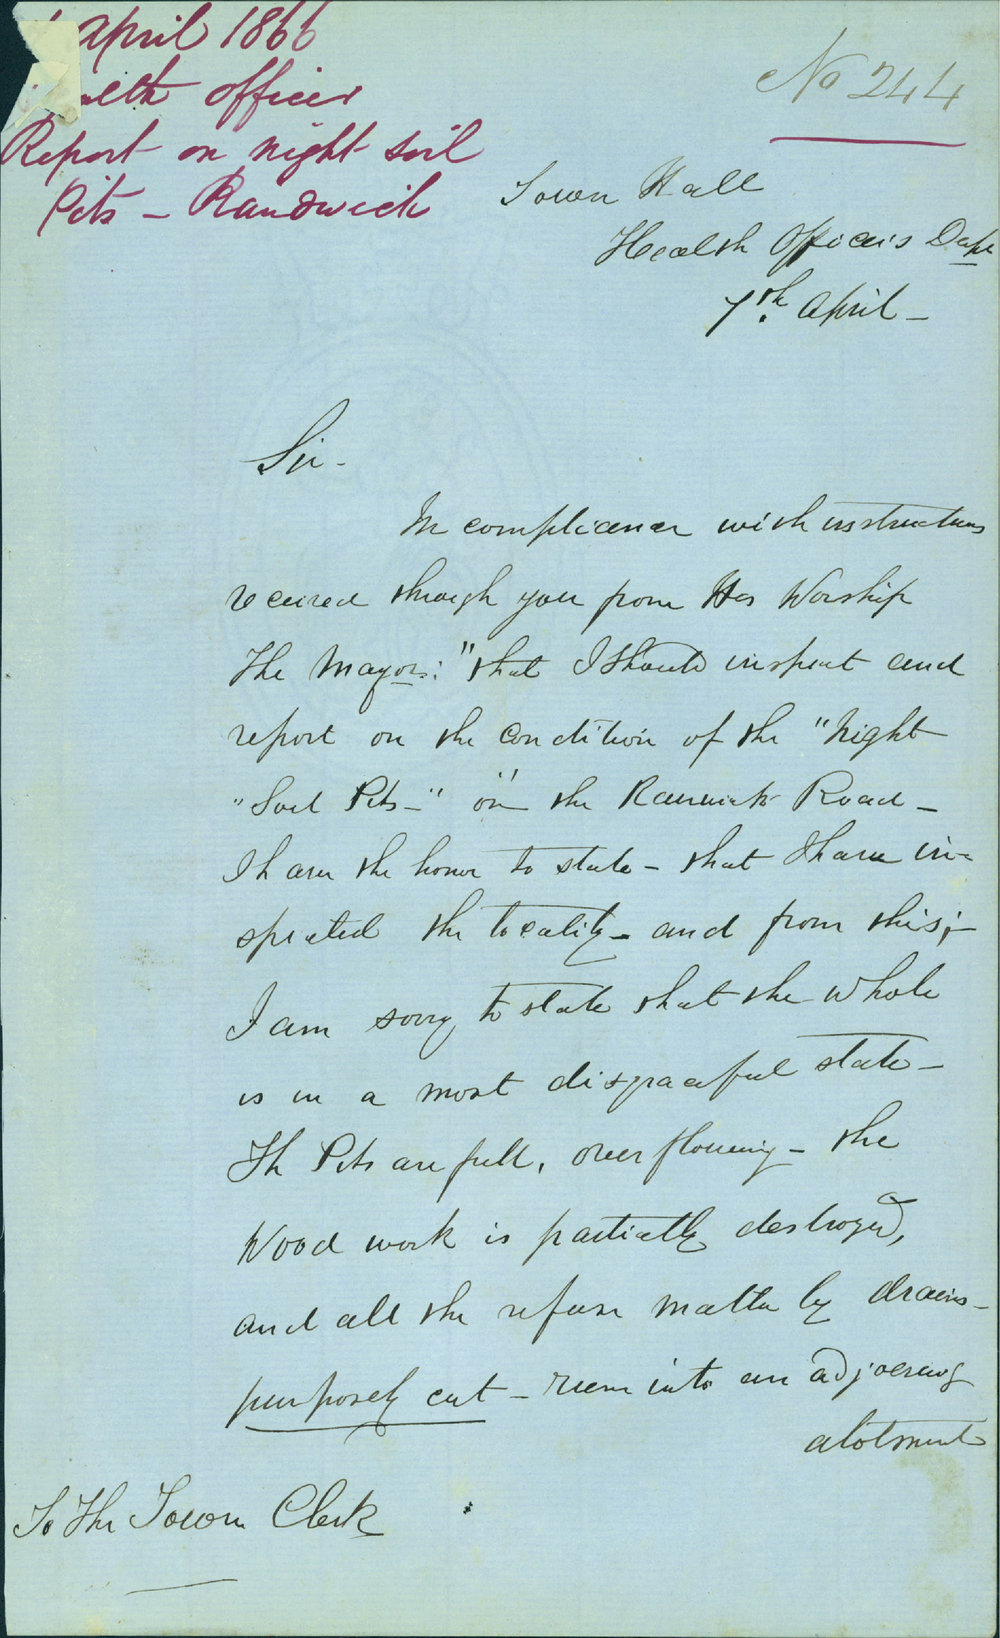 April 1866
Health officer
Report on night soil
Pits - Randwick
No 244
Town Hall
Health Officers Dept
7th April -
Sir -
In compliance with instructions
received through you from His Worship
The Mayor: "that I should inspect and
report on the condition of the "Night
"Soil Pits -" on the Ranwick Road -
I have the honor to state - that I have in-
spected the locality - and from this; -
I am sorry to state that the whole
is in a most disgraceful state -
Th Pits are full, overflowing - the
Wood work is partially destroyed,
and all the refuse matter by drains -
purposely cut - run into an adjoening
alotment
To The Town Clerk